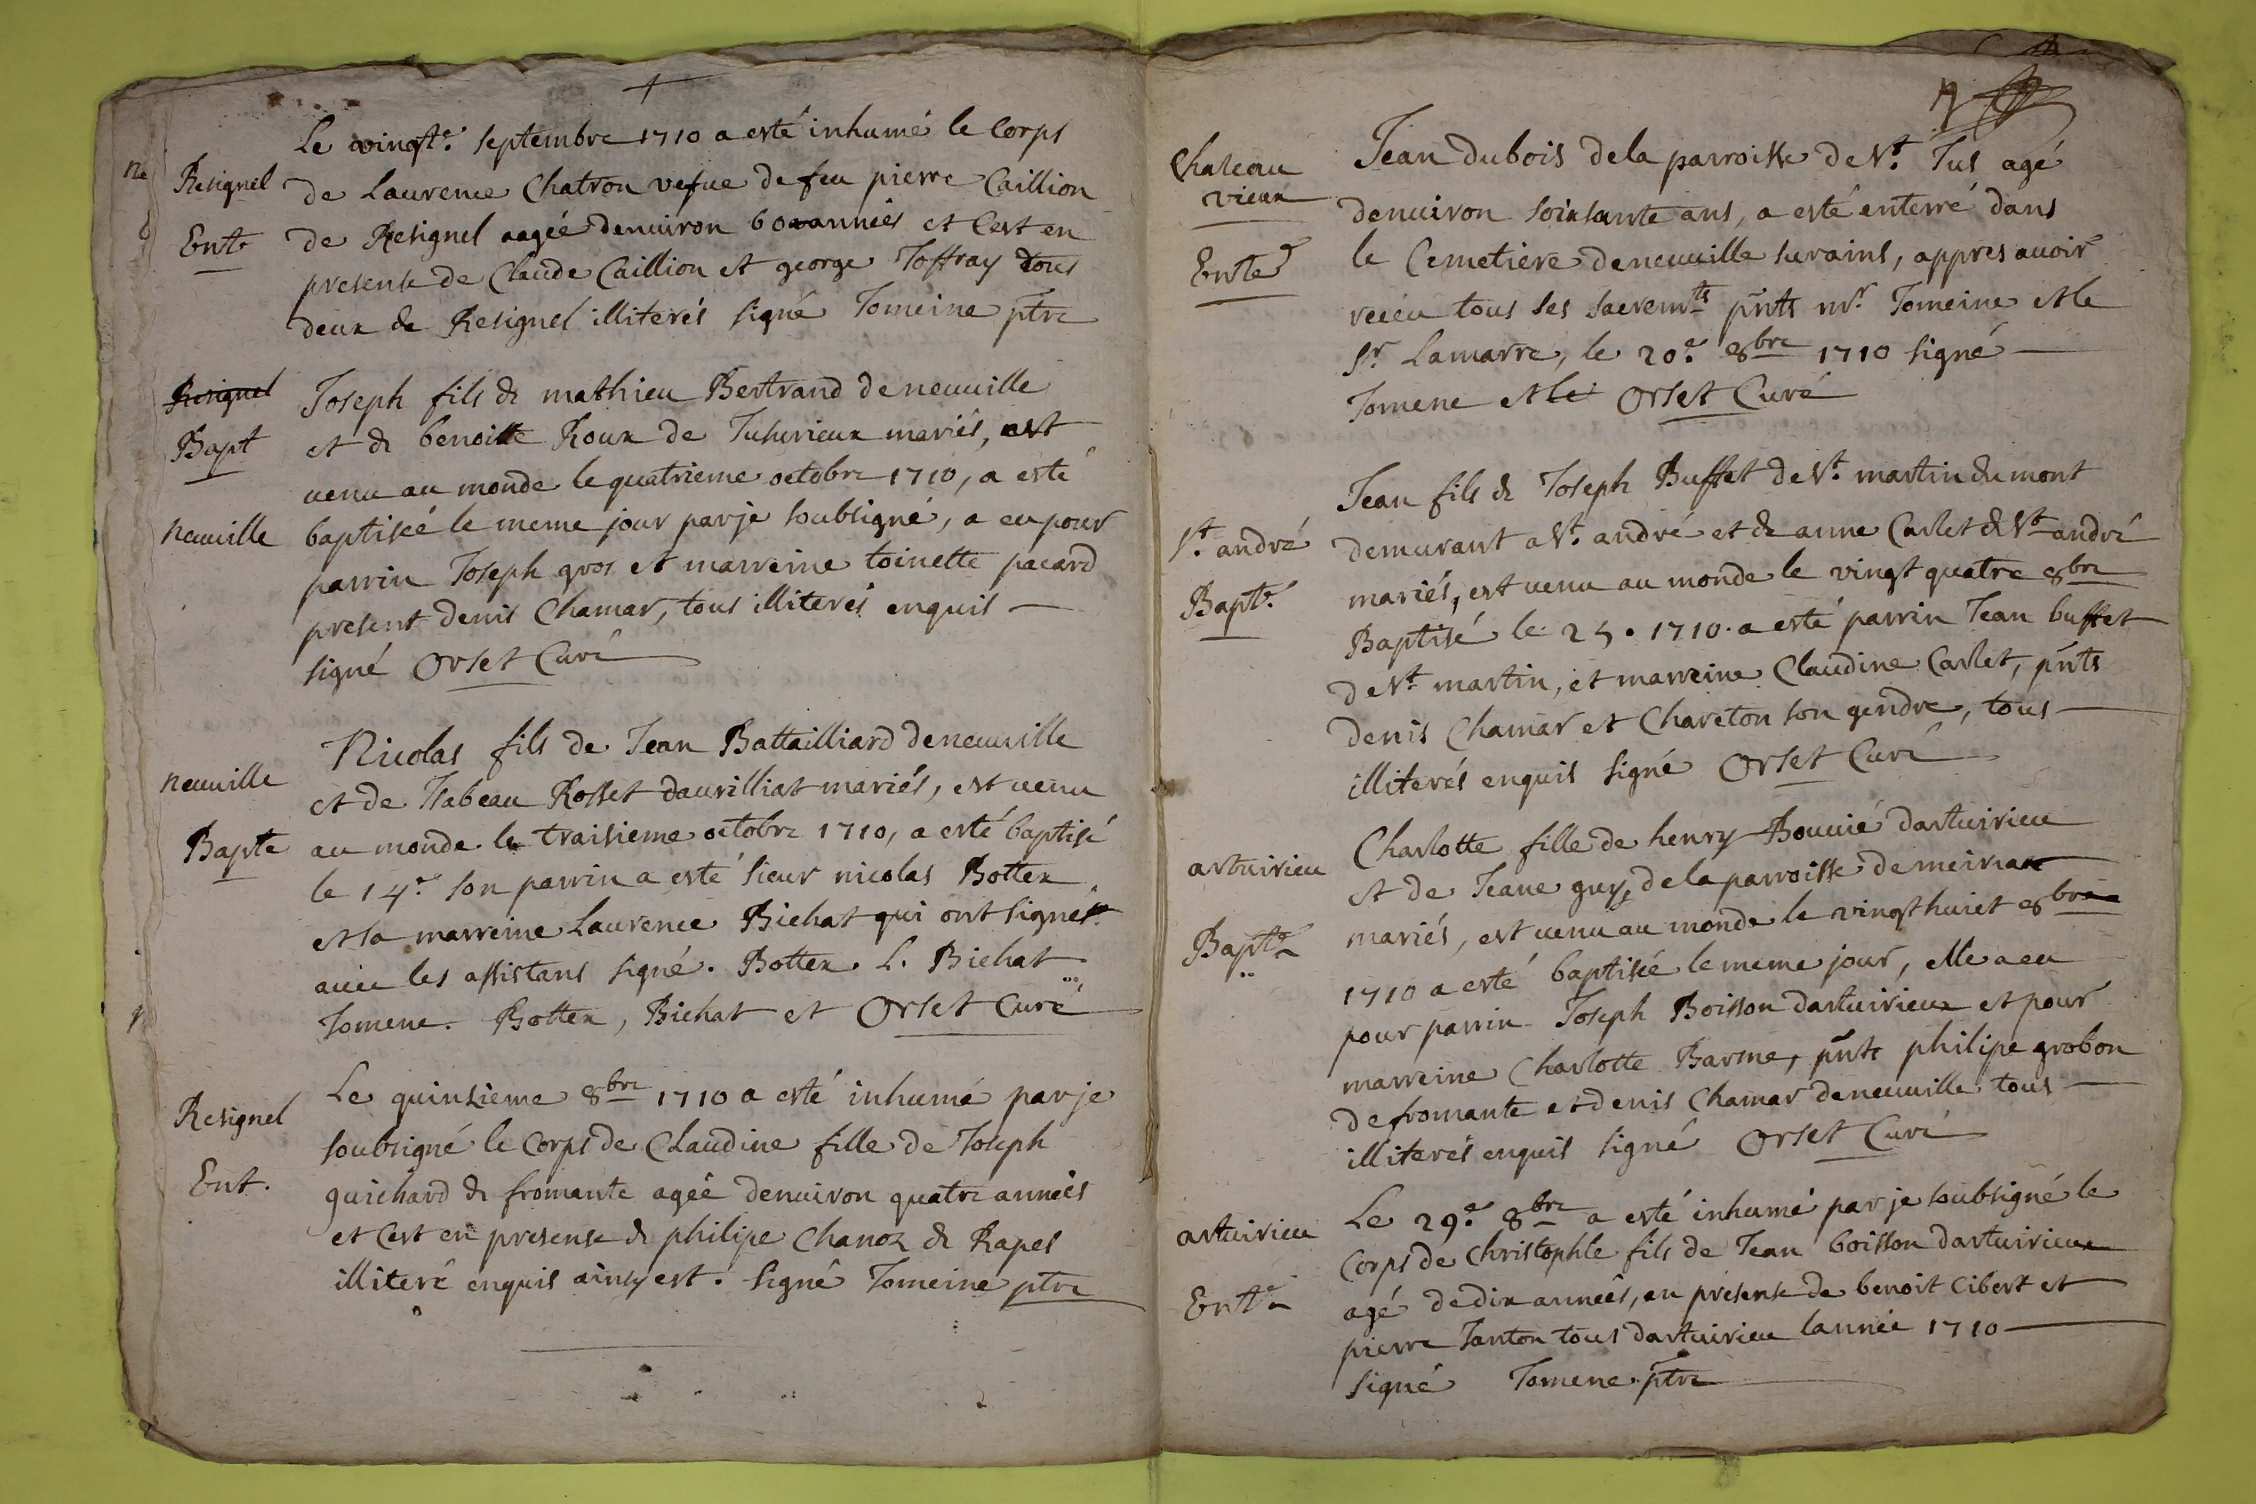 Le vingte. septembre 1710 a esté inhumé le corps
Resignel
de Laurence Chatron vefue de feu pierre Caillion
Ent.
de Resignel aagée denuiron 60 années et Cest en
presense de Claude Caillion et george Joffray tous
deux de Resignel illiterés signé Jomeine ptre
Resignel
Joseph fils de mathieu Bertrand de neuuille
Bapt
et de benoitte Roux de Jusurieux mariés, est
uenu au monde le quatrieme octobre 1710, a esté
neuuille
baptiséé le meme jour par je soubsigné, a eu pour
parrin Joseph gros et marreine toinette pacard
present denis Chamar, tous illiterés enquis
signé Orset Curé
Nicolas fils de Jean Battailliard de neuuille
neuuille
et de Isabeau Rosset daurilliat mariés, est uenu
Bapte
au monde le traisieme octobre 1710, a esté baptisé
le 14e. son parrin a esté sieur nicolas Bottex
et sa marreine Laurence Bichat qui ont signés
auec les assistans signé. Bottex. L. Bichat
Jomene. Bottex, Bichat et Orset Curé
Resignel
Le quinsieme 8bre 1710 a esté inhumé par je
soubsigné le Corps de Claudine fille de Joseph
Ent.
guichard de fromante agéé denuiron quatre années
et Cest en presense de philipe Chanoz de Rapes
illiteré enquis ainsy est. signé Jomeine ptre
Chateau
vieux
Jean dubois de la parroisse de St. Jus agé
denuiron soixsante ans, a esté enterré dans
Ente
le Cemetiere de neuuille surains, appres auoir
receu tous ses sacremts pnts mr. Jomeine et le
sr. Lamarre, le 20e. 8bre 1710 signé
Jomene et le Orset Curé
Jean fils de Joseph Buffet de St. martin du mont
St. andré
demurant a St. andré et de anne Carlet de St andré
Bapt.
mariés, est uenu au monde le vingt quatre 8bre
Baptisé le 25. 1710. a esté parrin Jean buffet
de St. martin, et marreine Claudine Carlet, pnts
denis Chamar et Chareton son gendre, tous
illiterés enquis signé Orset Curé
Charlotte fille de henry Bouuié dartuirieu
artuirieu
et de Jeane guy, de la parroisse de meiriat
Bapte
mariés, est uenu au monde le vingthuict 8bre
1710 a esté baptiséé le meme jour, elle a eu
pour parrin Joseph Boisson dartuirieux et pour
marreine Charlotte Barme, pnts philipe grobon
de fromante et denis Chamar de neuuille tous
illiterés enquis signé Orset Curé
artuirieu
Le 29e. 8bre a esté inhumé par je soubsigné le
Corps de Christophle fils de Jean boisson dartuirieux
Ente
agé de dix années, en presense de benoit Cibert et
pierre Janton tous dartuirieu lannée 1710
signé Jomene ptre